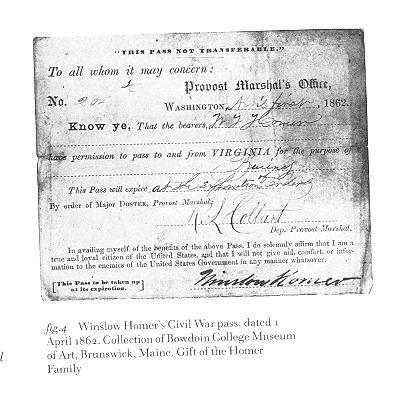 "THIS PASS NOT TRANSFERABLE."
To all whom it may concern:
Provost Marshal's Office,
No.
WASHINGTON, 1862.
Know ye, That the bearers,
have permission to pass to and from VIRGINIA for the purpose of
This Pass will expire at the expiration of
By order of Major DOSTER, Provost Marshal;
Dep. Provost Marshal.
In availing myself of the benefits of the above Pass, I do solemnly affirm that I am a
true and loyal citizen of the United States, and that I will not give aid, comfort, or infor-
mation to the enemies of the United States Government in any manner whatsoever.
[This Pass to be taken up
at its expiration.]
Winslow Homer
fig.4 Winslow Homer's Civil War pass, dated 1
April 1862. Collection of Bowdoin College Museum
of Art, Brunswick, Maine. Gift of the Homer
Family